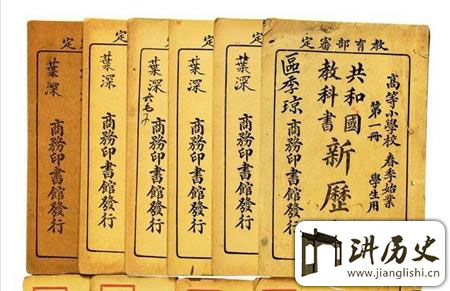 教育部審定
高等小學校
春季始業
學生用
第一冊
共和國
教科書
新歷
區季琼
商務印書館發行
葉深
商務印書館發行
葉深
商務印書館發行
葉深
商務印書館發行
葉深
商務印書館發行
定
葉深
商務印書館發行
讲历史
www.jianglishi.cn